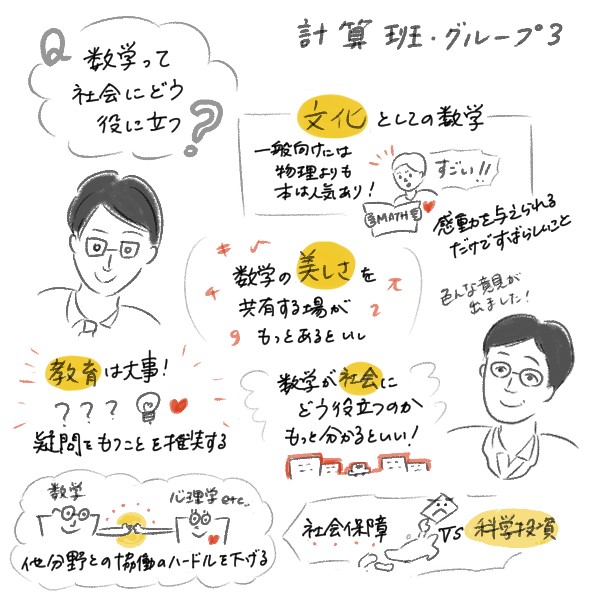 計算班・グループ3
Q 数学って
社会にどう
役に立つ?
文化としての数学
一般向けには
物理よりも
本は人気あり!
すごい!!
MATH
感動を与えられる
だけですばらしいこと
数学の美しさを
共有する場が
もっとあるといい
色んな意見が
出ました!
教育は大事!
???
疑問をもつことを推奨する
数学が社会に
どう役立つのか
もっと分かるといい!
数学
心理学etc..
他分野との協働のハードルを下げる
社会保障 VS 科学投資